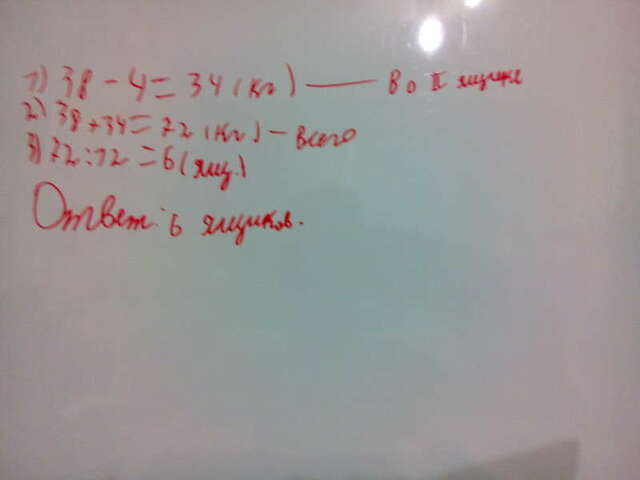 1) 38 - 4 = 34 (кг) — во II ящике
2) 38 + 34 = 72 (кг) - всего
3) 72 : 12 = 6 (ящ.)
Ответ: 6 ящиков.